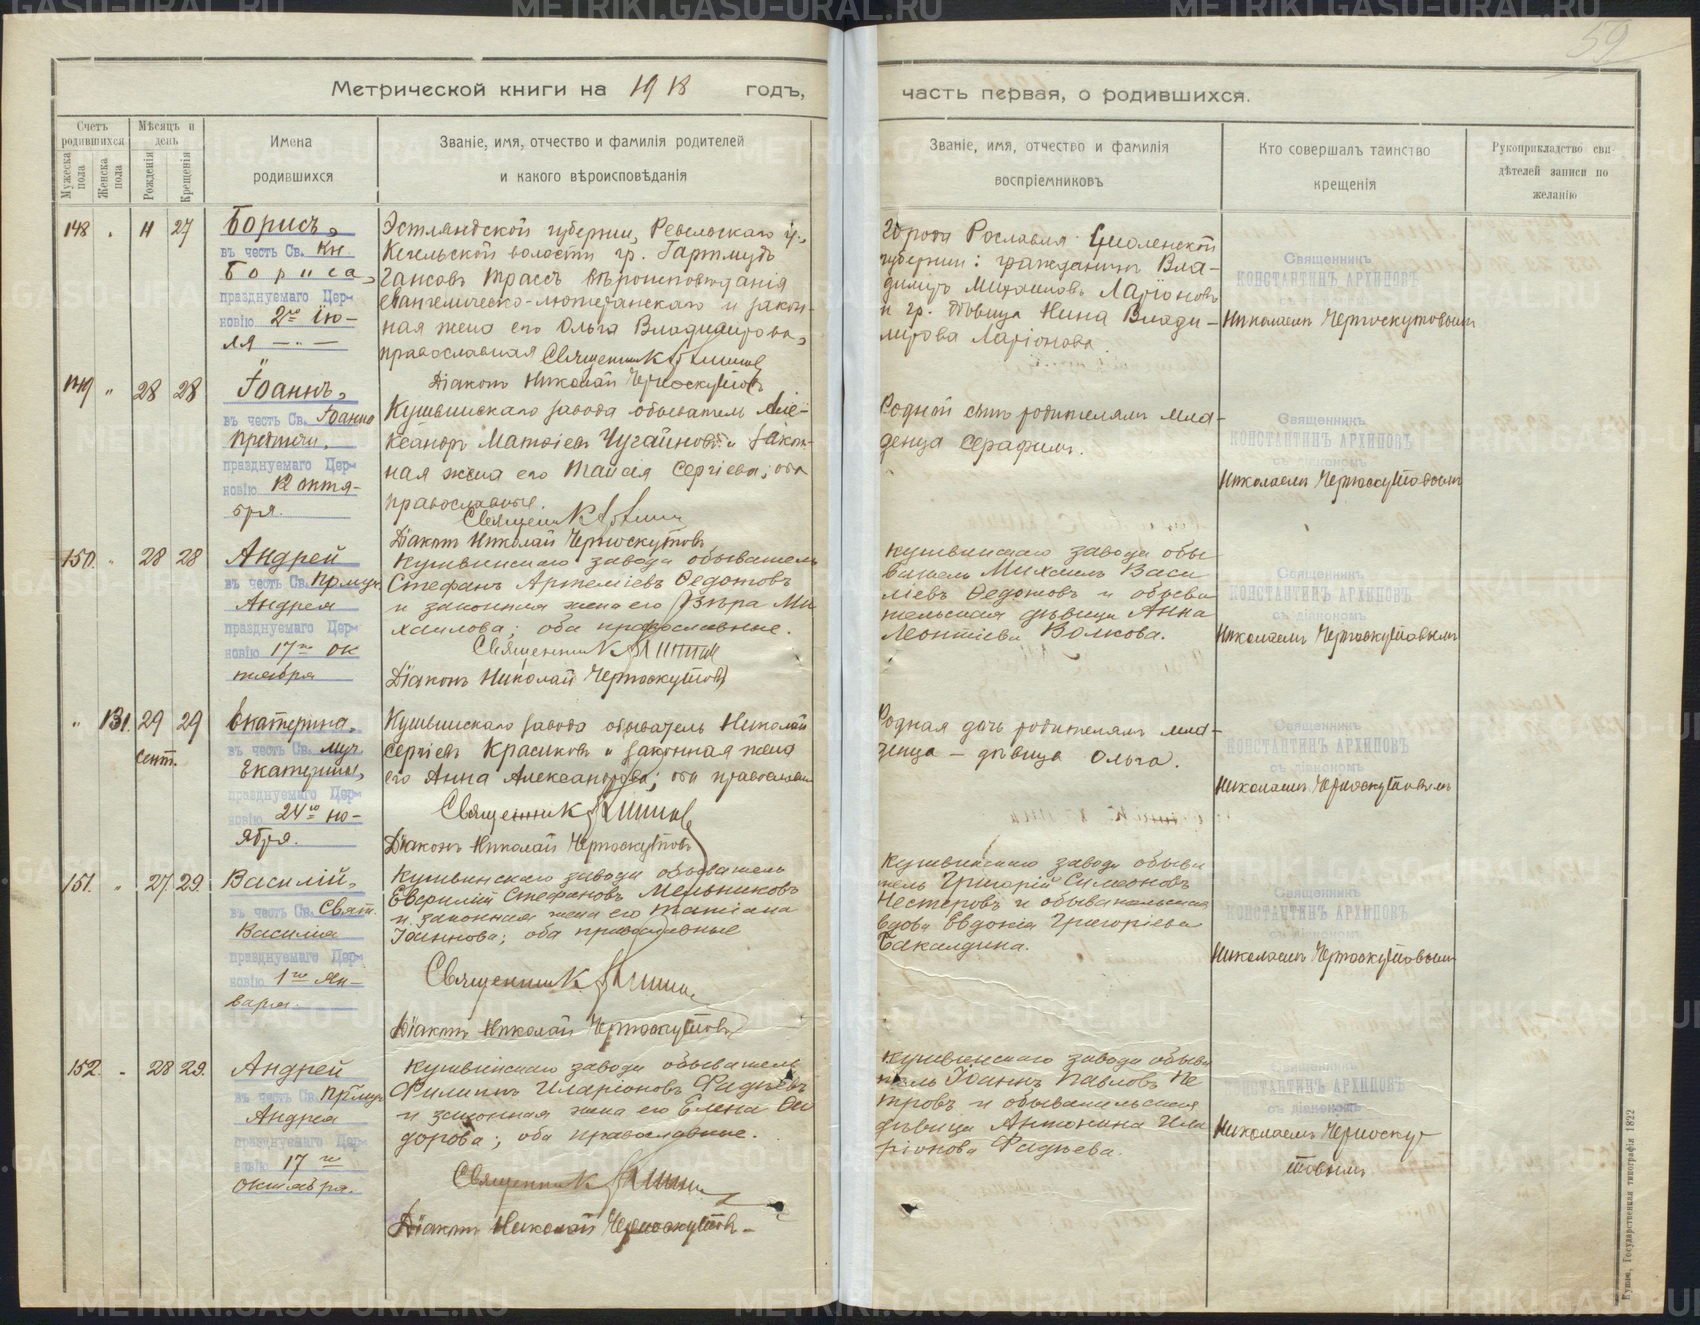 59
Метрической книги на 1918 годъ,
часть первая, о родившихся.
Счетъ родившихся
Мужеска пола
Женска пола
Мѣсяцъ и день
Рожденія
Крещенія
Имена
родившихся
Званіе, имя, отчество и фамилія родителей
и какого вѣроисповѣданія
Званіе, имя, отчество и фамилія
воспріемниковъ
Кто совершалъ таинство
крещенія
Рукоприкладство сви-
дѣтелей записи по
желанію
148 " 11 27
Борисъ,
въ честь Св. Кн.
Бориса,
празднуемаго Цер-
ковію 2го Ію-
ля
Эстляндской губерніи, Ревельскаго у.,
Кегельской волости гр. Гартмудъ
Гансовъ Трассъ вѣроисповѣданія
евангелическо-лютеранскаго и закон-
ная жена его Ольга Владимирова,
православная Священник
Діаконъ Николай Черноскутовъ
Города Рославля Смоленской
губерніи: гражданинъ Вла-
димиръ Михаиловъ Ларіоновъ
и гр. дѣвица Нина Влади-
мирова Ларіонова.
Священникъ
КОНСТАНТИНЪ АРХИПОВЪ
съ діакономъ
Николаемъ Черноскутовымъ
149 " 28 28
Іоаннъ,
въ честь Св. Іоанна
Предтечи.
празднуемаго Цер-
ковію 12 октя-
бря.
Кушвинскаго завода обыватель Але-
ксандръ Матѳіевъ Чугайновъ и закон-
ная жена его Таисія Сергіева; оба
православные.
Священник
Діаконъ Николай Черноскутовъ
Родной сынъ родителямъ мла-
денца Серафимъ.
Священникъ
КОНСТАНТИНЪ АРХИПОВЪ
съ діакономъ
Николаемъ Черноскутовымъ
150. " 28 28
Андрей
въ честь Св. Прпмуч.
Андрея
празднуемаго Цер-
ковію 17го ок
тября
Кушвинскаго завода обыватель
Стефанъ Артеміевъ Ѳедотовъ
и законная жена его Вѣра Ми
хаилова; оба православные.
Священник
Діаконъ Николай Черноскутовъ
Кушвинскаго завода обы-
ватель Михаилъ Васи
ліевъ Ѳедотовъ и обыва
тельская дѣвица Анна
Леонтіева Волкова.
Священникъ
КОНСТАНТИНЪ АРХИПОВЪ
съ діакономъ
Николаемъ Черноскутовымъ
" 131. 29 29
Сент.
Екатерина,
въ честь Св. муч.
Екатерины,
празднуемаго Цер-
ковію 24го но-
ября.
Кушвинскаго завода обыватель Николай
Сергіевъ Красиковъ и законная жена
его Анна Александрова; оба православные
Священник
Діаконъ Николай Черноскутовъ
Родная дочь родителямъ мла-
денца – дѣвица Ольга.
Священникъ
КОНСТАНТИНЪ АРХИПОВЪ
съ діакономъ
Николаемъ Черноскутовымъ
151. " 27 29.
Василій,
въ честь Св. Свят.
Василія
празднуемаго Цер-
ковію 1го Ян-
варя.
Кушвинскаго завода обыватель
Стефановъ Мельниковъ
и законная жена его Татіана
Іоаннова; оба православные
Священник
Діаконъ Николай Черноскутовъ
Кушвинскаго завода обыва
тель Григорій Симеоновъ
Нестеровъ и обывательская
вдова Евдокія Григоріева
Бакалдина.
Священникъ
КОНСТАНТИНЪ АРХИПОВЪ
съ діакономъ
Николаемъ Черноскутовымъ
152. " 28 29.
Андрей
въ честь Св. Прпмуч
Андрея
празднуемаго Цер-
ковію 17го
октября.
Кушвинскаго завода обыватель
Филиппъ Иларіоновъ Фадѣевъ
и законная жена его Елена Ѳео
дорова; оба православные.
Священник
Діаконъ Николай Черноскутовъ
Кушвинскаго завода обыва
тель Іоаннъ Павловъ Пе
тровъ и обывательская
дѣвица Антонина Ила
ріонова Фадѣева.
Священникъ
КОНСТАНТИНЪ АРХИПОВЪ
съ діакономъ
Николаемъ Черноску-
товымъ
Кушва, Государственная типографія 1822
METRIKI.GASO-URAL.RU